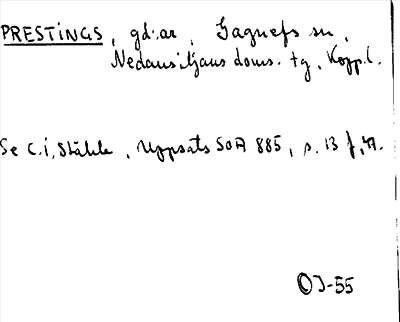 PRESTINGS, gd:ar, Gagnefs sn,
Nedansiljans doms. tg, Kopp.l.
Se C.I. Ståhle, Uppsats SOA 885, s. 13 f,
OJ-55